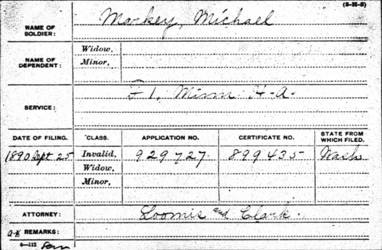 (3-35-5)
NAME OF SOLDIER: Markey, Michael
NAME OF DEPENDENT: Widow,
Minor,
SERVICE: F 1, Minn H-A.
DATE OF FILING. CLASS. APPLICATION NO. CERTIFICATE NO. STATE FROM WHICH FILED.
1890 Sept 25 Invalid, 929727. 899435 Wash
Widow,
Minor,
ATTORNEY: Loomis and Clark.
REMARKS: